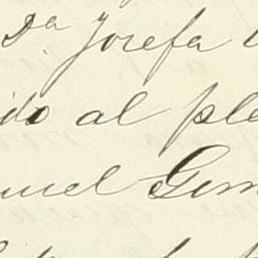 Dª Josefa
ido al ple
uel Gim